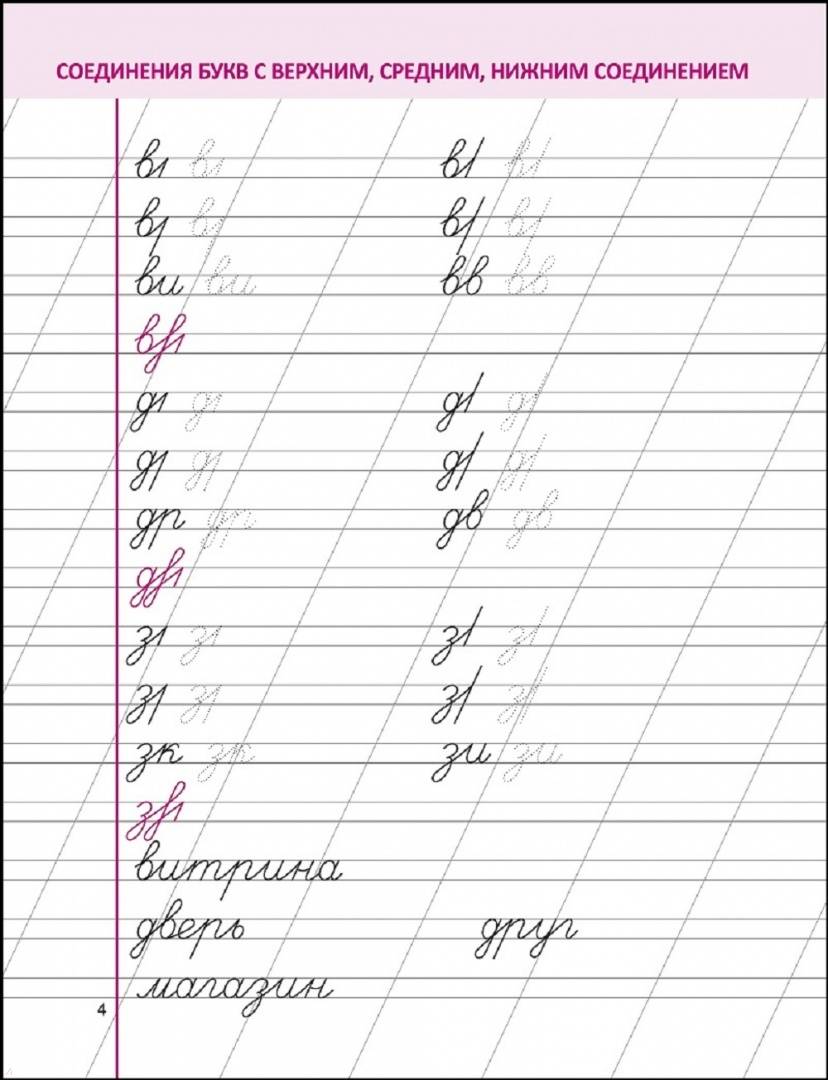 СОЕДИНЕНИЯ БУКВ С ВЕРХНИМ, СРЕДНИМ, НИЖНИМ СОЕДИНЕНИЕМ
ви ви вв вв
др др дв дв
зк зк зи зи
витрина
дверь друг
магазин
4